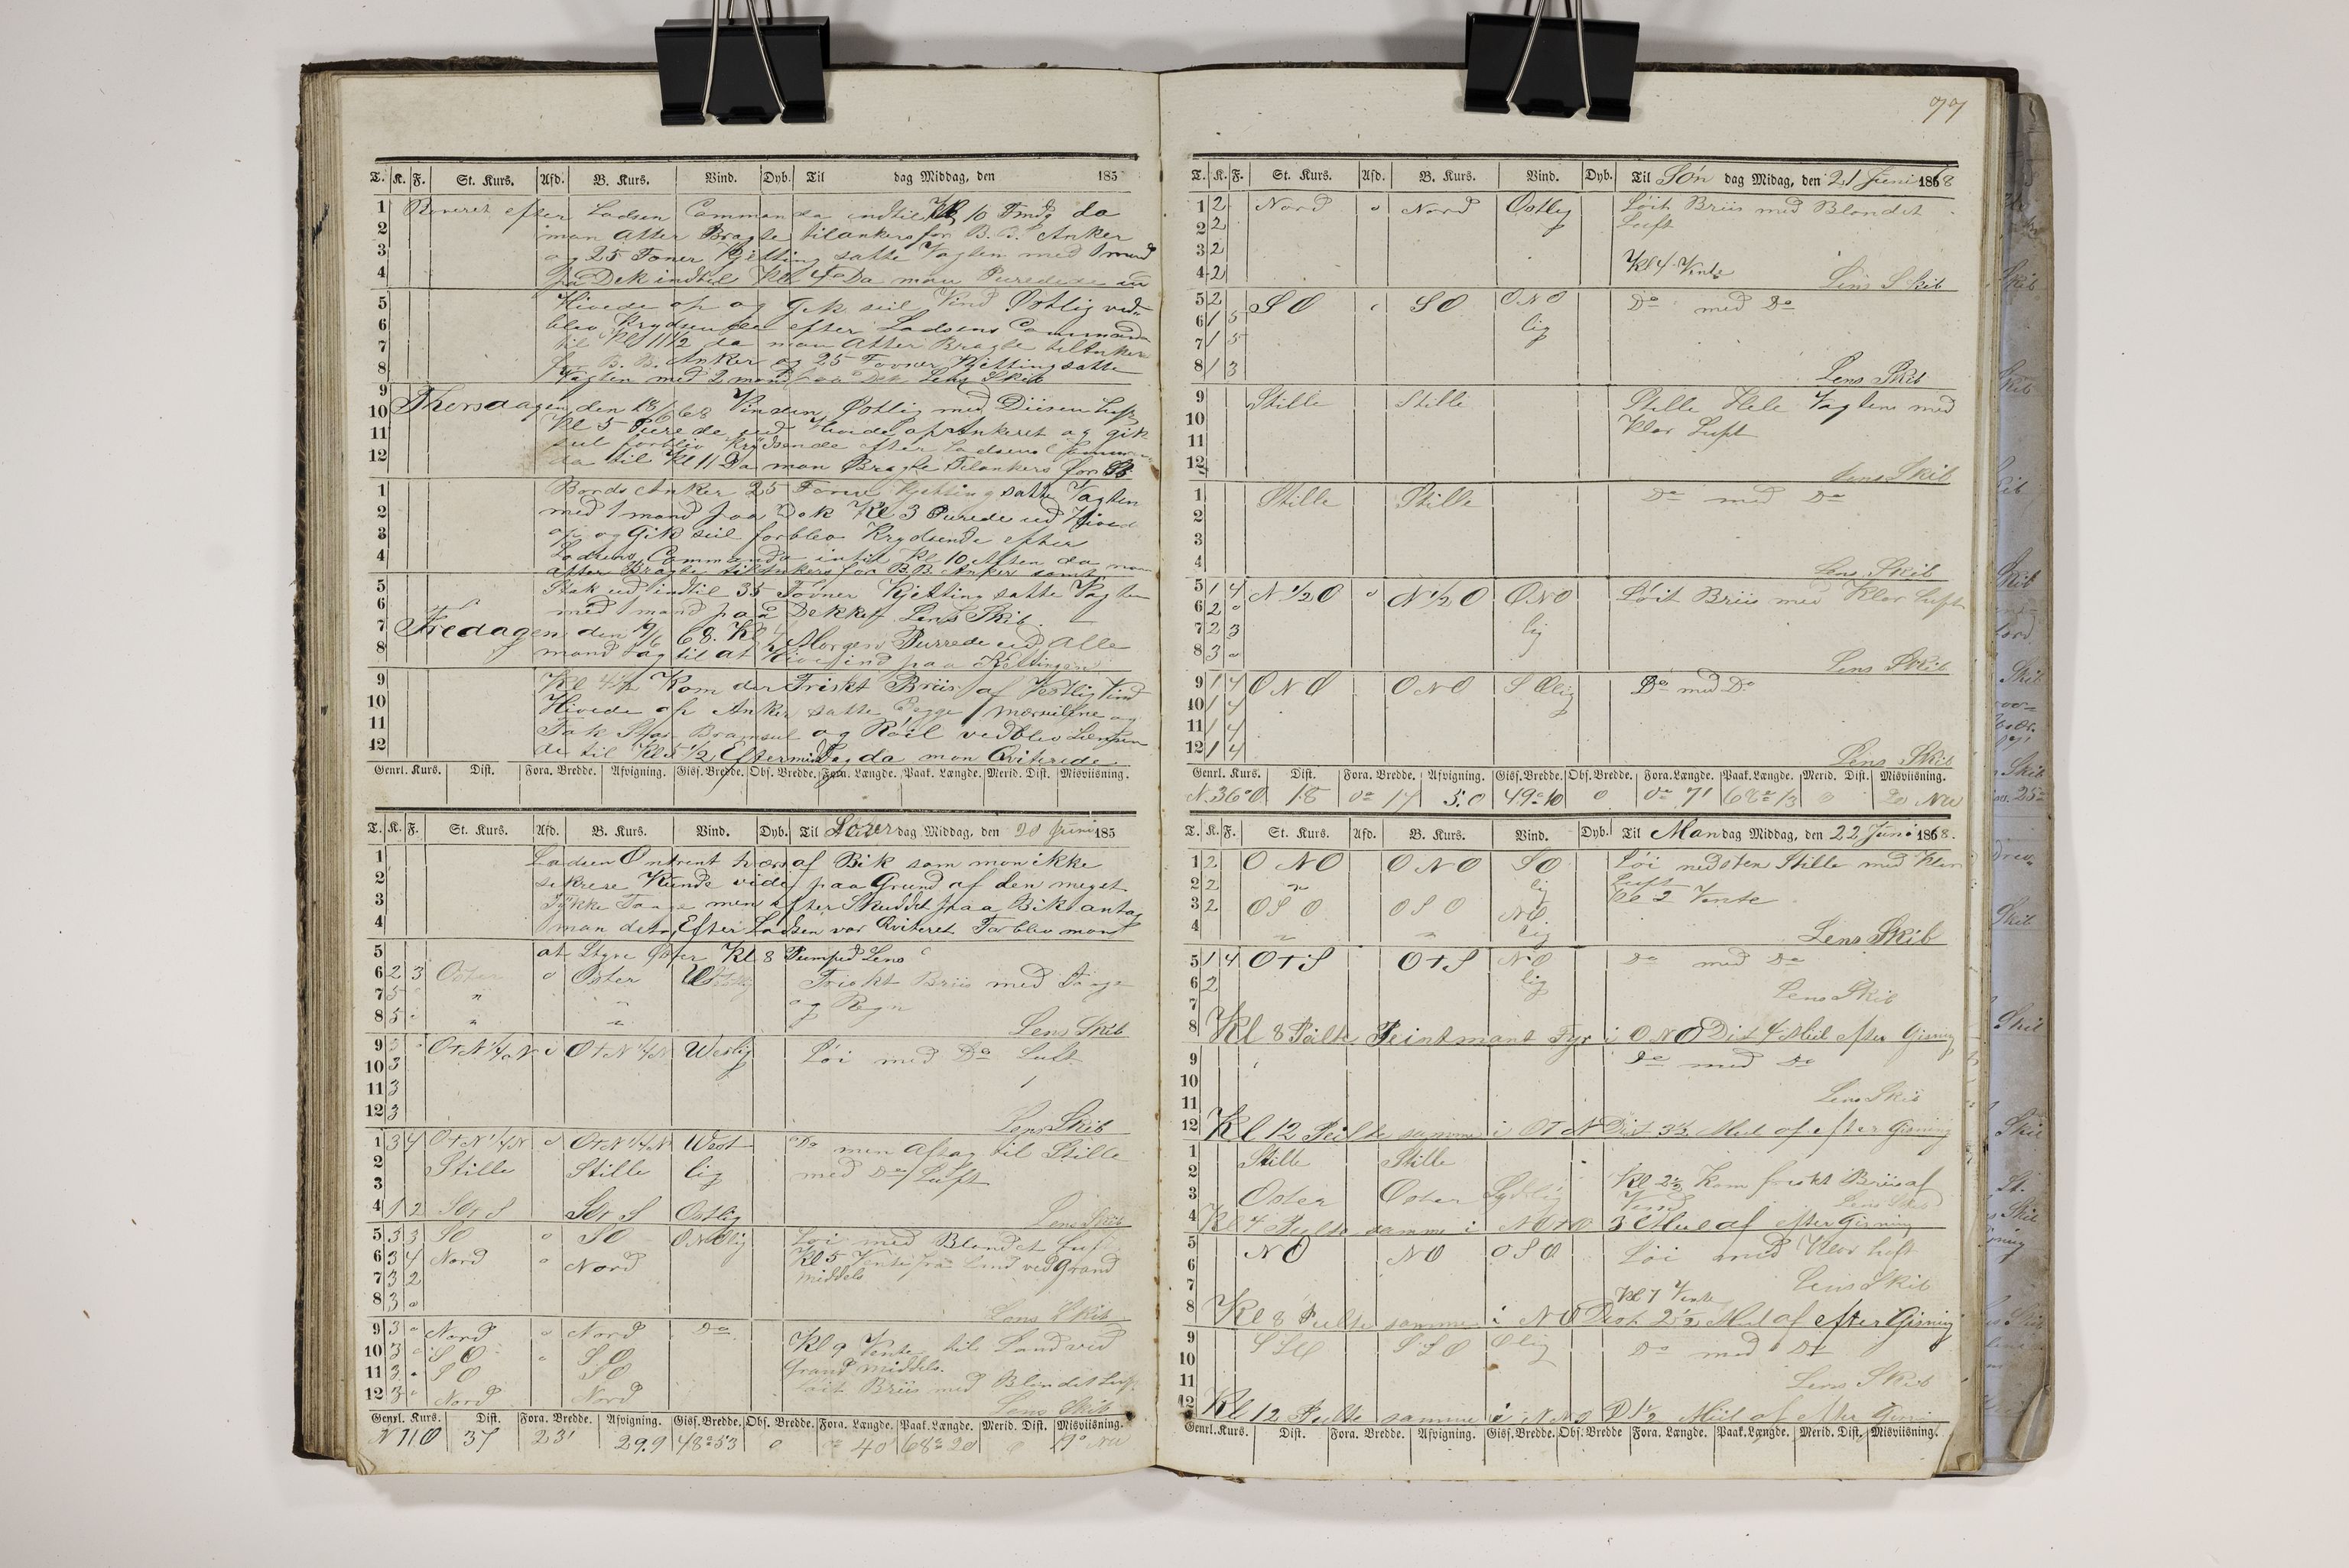 T. K. F. St. Kurs. Afd. B. Kurs. Vind. Dyb. Til dag Middag, den 185
1 efter Ladsen Commando indtil Kl 10 Fmdg da
2 man Atter Bragte tilankers for B.B. Anker
3 og 25 Favner Kjetting satte Vagten med 1 mand
4 paa Dek indtil Kl 4 Da man Purrede ud
5 Hivede op og Gik seil Vind Østlig ved-
6 blev Krydsende efter Ladsens Commando
7 til Kl 11 1/2 da man Atter Bragte tilankers
8 for B.B. Anker og 25 Favner Kjetting satte
Vagten med 2 mand paa Dek Lens Skib
9
10 Thorsdagen den 18/6 68 Vinden Østlig med Diisen Luft
11 Kl 5 Purede ud Hivede op Ankeret og gik
seil forblev Krydsende efter Ladsens
12 da til Kl 11 Da man Bragte Tilankers for St.
1 Bords Anker 25 Favne Kjetting satte Vagten
2 med 1 mand paa Dek Kl 3 Purede ud Hived
3 op og Gik seil forblev Krydsende efter
4 Ladsens Commando intil Kl 10 Aften da man
atter Bragte tilankers for B.B. Anker samt
5 Stak ud indtil 35 Favner Kjetting satte Vagten
6 med 1 mand paa Dekket Lens Skib.
7 Fredagen den 19/6 68. Kl 4 Morgen Purrede ud Alle
8 mand tag til at Hive ind paa Kettingen
9 Kl 4 1/2 Kom der Friskt Briis af Vestlig Vind
10 Hivede op Anker satte Begge Mersseilene og
11 Fok Stor Bramseil og Röil vedblev Lensen
12 de til Kl 5 1/2 Eftermiddag da man Qviterede
Genrl. Kurs. Dist. Fora. Bredde. Afvigning. Gisf. Bredde. Obs. Bredde. Fora. Længde. Paak. Længde. Merid. Dist. Misviisning.
T. K. F. St. Kurs. Afd. B. Kurs. Vind. Dyb. Til Löver dag Middag, den 20 Juni 185
1 Ladsen Omtrent tvers af Bik som man ikke
2 sikrese Kunde vide paa Grund af den meget
3 Tykke Taage men efter Skuddet paa Bik antog
4 man det, Efter Ladsen var Qviteret Forblev man
5 at Styre Øster Kl 8 Pumped Lens
6 2 3 Oster o Oster Friskt Briis med Taage
7 5 " " og Regn
8 5 " " Lens Skib
9 3 O+N 1/4 N O+N 1/4 N Westlig Löi med Do Luft
10 3
11 3
12 3 Lens Skib
1 3 4 O+N 1/4 N O+N 1/4 N West Do men Aftag til Stille
2 Stille Stille lig med Do Luft
3
4 1 2 SO+S SO+S Ostlig Lens Skib
5 3 3 SO o SO ONOlig Löi med Blandet Luft
6 3 4 Nord o Nord Kl 5 Vente fra Land ved Grand
7 3 2 Middels
8 3 o Lens Skib
9 3 o Nord o Nord Do Kl 9 Vente til Land ved
10 3 SO SO Grand Middels
11 3 SO SO Löit Briis med Blandet Luft
12 3 Nord Nord Lens Skib
Genrl. Kurs. Dist. Fora. Bredde. Afvigning. Gisf. Bredde. Obs. Bredde. Fora. Længde. Paak. Længde. Merid. Dist. Misviisning.
N 71 O 37 23' 29.9 48° 53 o 40' 68° 20 19°
77
T. K. F. St. Kurs. Afd. B. Kurs. Vind. Dyb. Til Sön dag Midag, den 21 Juni 1868
1 2 Nord o Nord Ostlig Löit Briis med Blandet
2 2 Luft
3 2
4 2 Kl 4 Vente Lens Skib
5 2 SO SO ONO Do med Do
6 1 5 lig
7 1 5
8 1 3 Lens Skib
9 Stille Stille Stille Hele Vagten med
10 Klar Luft
11
12 Lens Skib
1 Stille Stille Do med Do
2
3
4 Lens Skib
5 1 4 N 1/2 O o N 1/2 O ONO Löit Briis med Klar Luft
6 2 o
7 2 3 lig
8 3 o Lens Skib
9 1 4 ONO ONO SOlig Do med Do
10 1 4
11 1 4
12 1 4 Lens Skib
Genrl. Kurs. Dist. Fora. Bredde. Afvigning. Gisf. Bredde. Obs. Bredde. Fora. Længde. Paak. Længde. Merid. Dist. Misviisning.
N. 36° O 18 0° 17 5.0 49° 10 o 0° 71 68° 13 o 20 NW
T. K. F. St. Kurs. Afd. B. Kurs. Vind. Dyb. Til Man dag Middag, den 22 Juni 1868.
1 2 ONO ONO SO Löi nesten Stille med Klar
2 2 " lig Luft
3 2 OSO OSO NO Kl 2 Vente
4 " " lig Lens Skib
5 1 4 O+S O+S NO Do med Do
6 2 lig Lens Skib
7
8 Kl 8 Peilte Pointmant Fyr i ONO Dist 4 Miil efter Gisning
9 Do med Do
10
11 Lens Skib
12 Kl 12 Peilte samme i O+N Dist 3 1/2 Miil af efter Gisning
1 Stille Stille
2 Kl 2 1/2 Kom friskt Briis af
3 Oster Oster Sydlig Vind Lens Skib
4 Kl 4 Peilte samme i NO+O 3 Miil af efter Gisning
5 NO NO OSO Löi med Klar Luft
6
7 Kl 7 Vente Lens Skib
8 Kl 8 Peilte samme i NO Dist 2 1/2 Miil af efter Gisning
9 SSO SSO Olig Do med Do
10
11 Lens Skib
12 Kl 12 Peilte samme i NNO D 1 1/2 Miil af efter
Genrl. Kurs. Dist. Fora. Bredde. Afvigning. Gisf. Bredde. Obs. Bredde Fora. Længde. Paak. Længde. Merid. Dist. Misviisning.